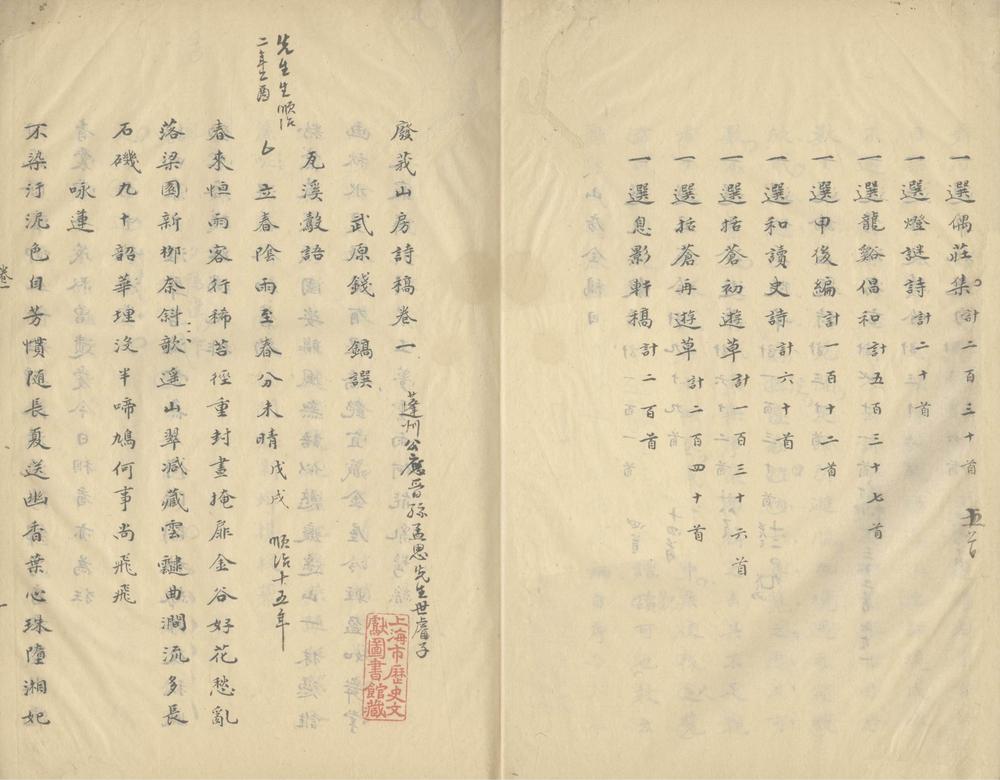 一選偶莊集計二百三十首
五首
一選燈謎詩計二十首
一選龍谿倡和計五百三十七首
一選甲後編計一百十二首
一選和讀史詩計六十首
一選括蒼初遊草計一百三十六首
一選括蒼再遊草計二百四十首
一選息影軒稿計二百首
廢莪山房詩稿卷一
蓬州公應晉孫孟思先生世
上海市歷史文獻圖書館藏
武原錢鎬譔
瓦溪
先生生順治二年乙酉
立春陰雨至春分未晴戊戌
順治十五年
春來恒雨客行稀苔徑重封晝掩扉金谷好花愁亂
落梁園新栁柰斜歌遥山翠減藏雲靆曲澗流多長
石磯九十韶華埋沒半啼鳩何事尚飛飛
咏蓮
不染汙泥色自芳慣隨長夏送幽香葉心珠墮湘妃
卷一